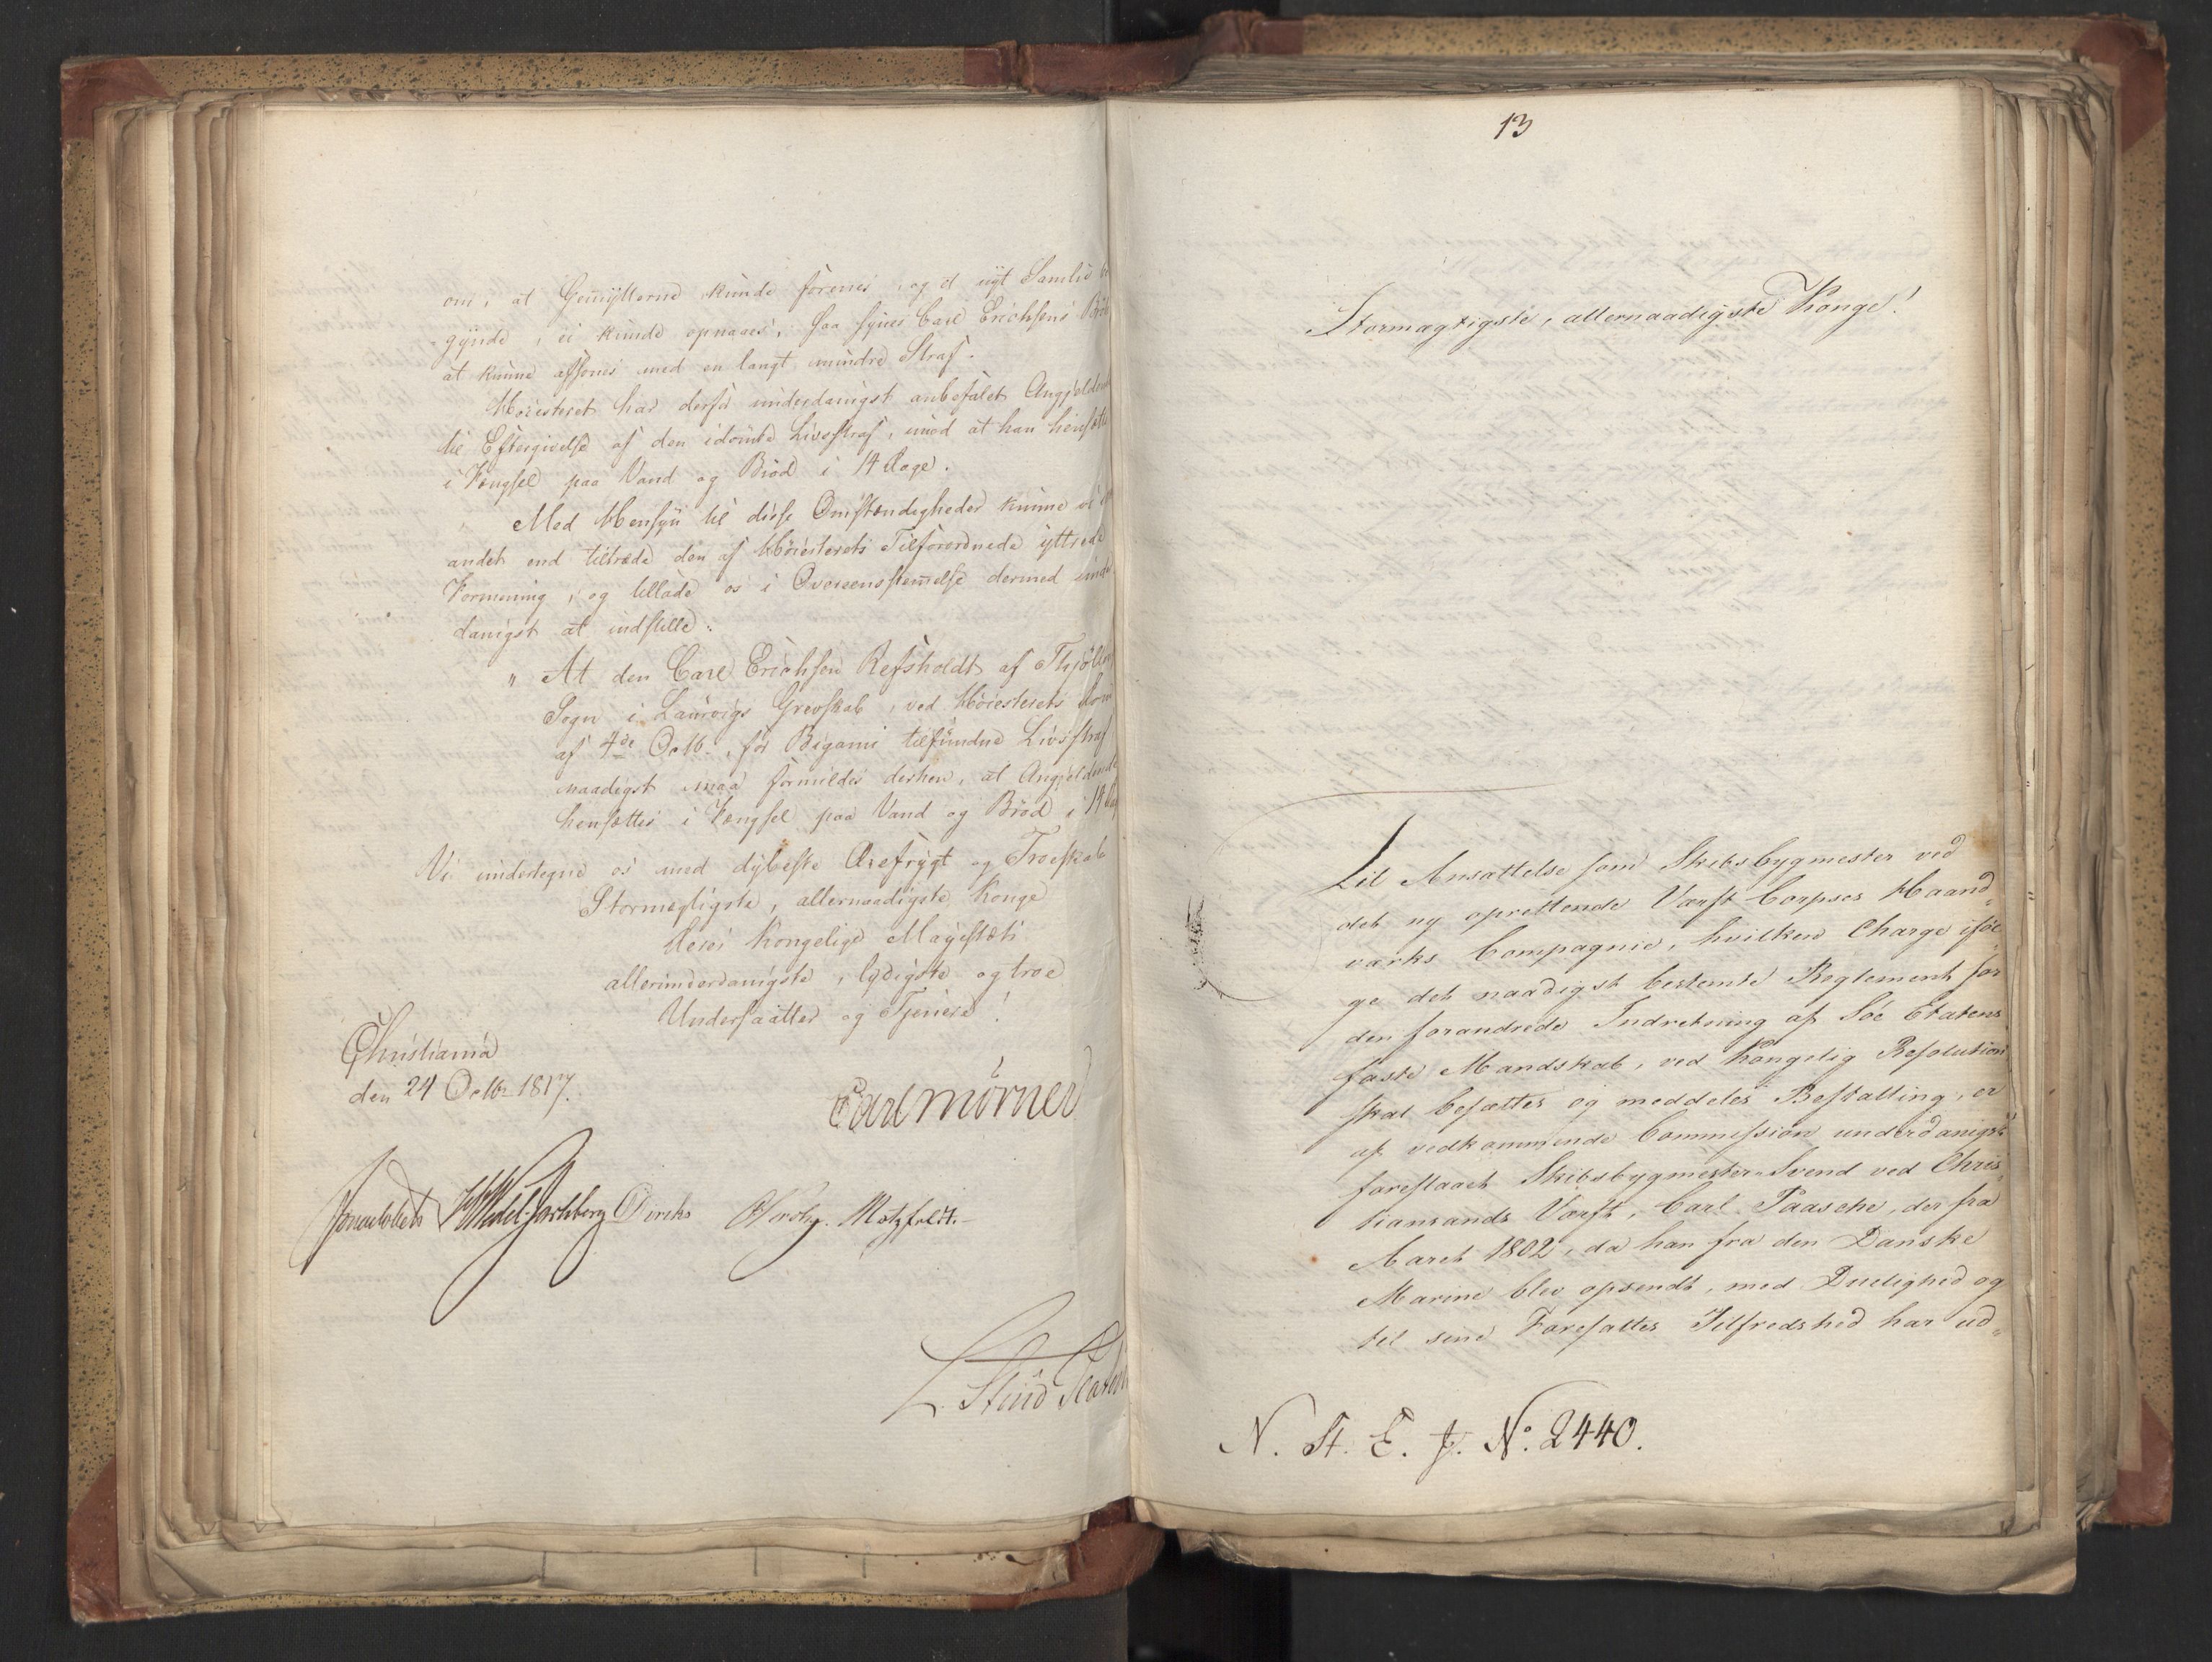 om, at Gemÿtterne kunde forenes, og et nyt Samliv be
gÿnde, ei kunde opnaaes, saa synes Carl Erichsens Brøde
at kunne afsones med en langt mindre Straf.
Høiesteret har derfor underdanigst anbefalet Angjeldende
til Eftergivelse af den idømte Livsstraf, imod at han hensættes
i Fængsel paa Vand og Brød i 14 Dage.
Med Hensÿn til disse Omstændigheder kunne vi ei
andet end tiltræde den af Høiesterets Tilforordnede ÿttrede
Formening, og tillade os i Overeensstemmelse dermed under
danigst at indstille:
" At den Carl Erichsen Refsholdt af Thjølling
Sogn i Laurvigs Grevskab, ved Høiesterets Dom
af 4de Octb. for Bigami tilfundne Livsstraf
naadigst maa formildes derhen, at Angjeldende
hensættes i Fængsel paa Vand og Brød i 14 Dage
Vi undertegne os med dÿbeste Ærefrÿgt og Troeskab
Stormægtigste, allernaadigste Konge
Deres Kongelige Majestæts
allerunderdanigste, lÿdigste og troe
Undersaatter og Tjenere!
Christiania
den 24 Octbr 1817.
Carl Mörner
Sommerhielm HWedel-Jarlsberg Diriks CKrohg. Motzfeldt.
L. Stud Platou
13
Stormægtigste, allernaadigste Konge!
Til Ansættelse som Skibsbygmester ved
det ny oprettende Værft Corpses Haand„
værks Compagnie, hvilken Charge iføl„
ge det naadigst bestemte Reglement for
den forandrede Indretning af Søe Etatens
faste Mandskab, ved Kongelig Resolution
skal besættes og meddeles Bestalling, er
af vedkommende Commission underdanigst
foreslaaet Skibsbygmester-Svend ved Chris„
tiansands Værft, Carl Paasche, der fra
Aaret 1802, da han fra den Danske
Marine blev opsendt, med Duelighed og
til sine Foresattes Tilfredshed har ud„
N. St. E. J. No. 2440.